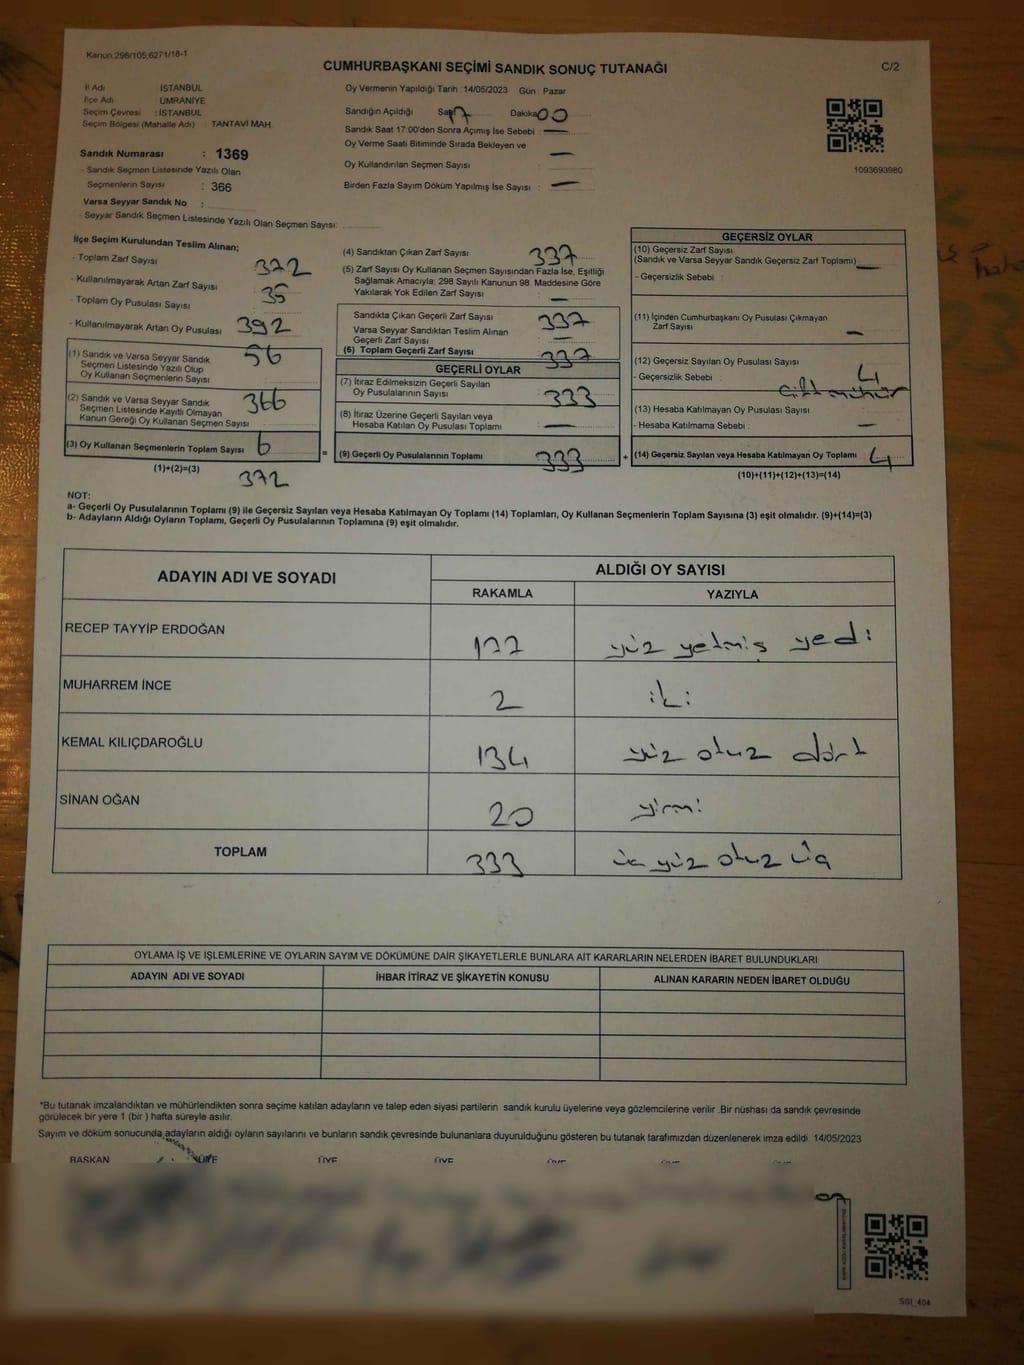 Kanun 298/105,6271/18-1
CUMHURBAŞKANI SEÇİMİ SANDIK SONUÇ TUTANAĞI
C/2
İl Adı : İSTANBUL
İlçe Adı : ÜMRANİYE
Seçim Çevresi : İSTANBUL
Seçim Bölgesi (Mahalle Adı) : TANTAVİ MAH.
Sandık Numarası : 1369
- Sandık Seçmen Listesinde Yazılı Olan
Seçmenlerin Sayısı : 366
Varsa Seyyar Sandık No :
- Seyyar Sandık Seçmen Listesinde Yazılı Olan Seçmen Sayısı:
Oy Vermenin Yapıldığı Tarih : 14/05/2023 Gün : Pazar
Sandığın Açıldığı Saat 17 Dakika 00
Sandık Saat 17:00'den Sonra Açımış İse Sebebi : —
Oy Verme Saati Bitiminde Sırada Bekleyen ve
Oy Kullandırılan Seçmen Sayısı : —
Birden Fazla Sayım Döküm Yapılmış İse Sayısı : —
1093693980
İlçe Seçim Kurulundan Teslim Alınan;
- Toplam Zarf Sayısı 372
- Kullanılmayarak Artan Zarf Sayısı 35
- Toplam Oy Pusulası Sayısı
- Kullanılmayarak Artan Oy Pusulası 392
(1) Sandık ve Varsa Seyyar Sandık 56
Seçmen Listesinde Yazılı Olup
Oy Kullanan Seçmenlerin Sayısı
(2) Sandık ve Varsa Seyyar Sandık 366
Seçmen Listesinde Kayıtlı Olmayan
Kanun Gereği Oy Kullanan Seçmen Sayısı
(3) Oy Kullanan Seçmenlerin Toplam Sayısı 6
(1)+(2)=(3) 372
(4) Sandıktan Çıkan Zarf Sayısı 337
(5) Zarf Sayısı Oy Kullanan Seçmen Sayısından Fazla İse, Eşitliği
Sağlamak Amacıyla; 298 Sayılı Kanunun 98. Maddesine Göre
Yakılarak Yok Edilen Zarf Sayısı —
Sandıkta Çıkan Geçerli Zarf Sayısı 337
Varsa Seyyar Sandıktan Teslim Alınan
Geçerli Zarf Sayısı —
(6) Toplam Geçerli Zarf Sayısı 337
GEÇERLİ OYLAR
(7) İtiraz Edilmeksizin Geçerli Sayılan
Oy Pusulalarının Sayısı 333
(8) İtiraz Üzerine Geçerli Sayılan veya
Hesaba Katılan Oy Pusulası Toplamı —
= (9) Geçerli Oy Pusulalarının Toplamı 333
GEÇERSİZ OYLAR
(10) Geçersiz Zarf Sayısı
(Sandık ve Varsa Seyyar Sandık Geçersiz Zarf Toplamı) —
- Geçersizlik Sebebi :
(11) İçinden Cumhurbaşkanı Oy Pusulası Çıkmayan
Zarf Sayısı —
(12) Geçersiz Sayılan Oy Pusulası Sayısı 4
- Geçersizlik Sebebi : Çift mühür
(13) Hesaba Katılmayan Oy Pusulası Sayısı
- Hesaba Katılmama Sebebi : —
+ (14) Geçersiz Sayılan veya Hesaba Katılmayan Oy Toplamı 4
(10)+(11)+(12)+(13)=(14)
NOT:
a- Geçerli Oy Pusulalarının Toplamı (9) ile Geçersiz Sayılan veya Hesaba Katılmayan Oy Toplamı (14) Toplamları, Oy Kullanan Seçmenlerin Toplam Sayısına (3) eşit olmalıdır. (9)+(14)=(3)
b- Adayların Aldığı Oyların Toplamı, Geçerli Oy Pusulalarının Toplamına (9) eşit olmalıdır.
ADAYIN ADI VE SOYADI
ALDIĞI OY SAYISI
RAKAMLA YAZIYLA
RECEP TAYYİP ERDOĞAN 177 yüz yetmiş yedi
MUHARREM İNCE 2 iki
KEMAL KILIÇDAROĞLU 134 yüz otuz dört
SİNAN OĞAN 20 yirmi
TOPLAM 333 üç yüz otuz üç
OYLAMA İŞ VE İŞLEMLERİNE VE OYLARIN SAYIM VE DÖKÜMÜNE DAİR ŞİKAYETLERLE BUNLARA AİT KARARLARIN NELERDEN İBARET BULUNDUKLARI
ADAYIN ADI VE SOYADI İHBAR İTİRAZ VE ŞİKAYETİN KONUSU ALINAN KARARIN NEDEN İBARET OLDUĞU
*Bu tutanak imzalandıktan ve mühürlendikten sonra seçime katılan adayların ve talep eden siyasi partilerin sandık kurulu üyelerine veya gözlemcilerine verilir .Bir nüshası da sandık çevresinde
görülecek bir yere 1 (bir ) hafta süreyle asılır.
Sayım ve döküm sonucunda adayların aldığı oyların sayılarını ve bunların sandık çevresinde bulunanlara duyurulduğunu gösteren bu tutanak tarafımızdan düzenlenerek imza edildi. 14/05/2023
BAŞKAN ÜYE ÜYE ÜYE ÜYE ÜYE ÜYE
SSI_404